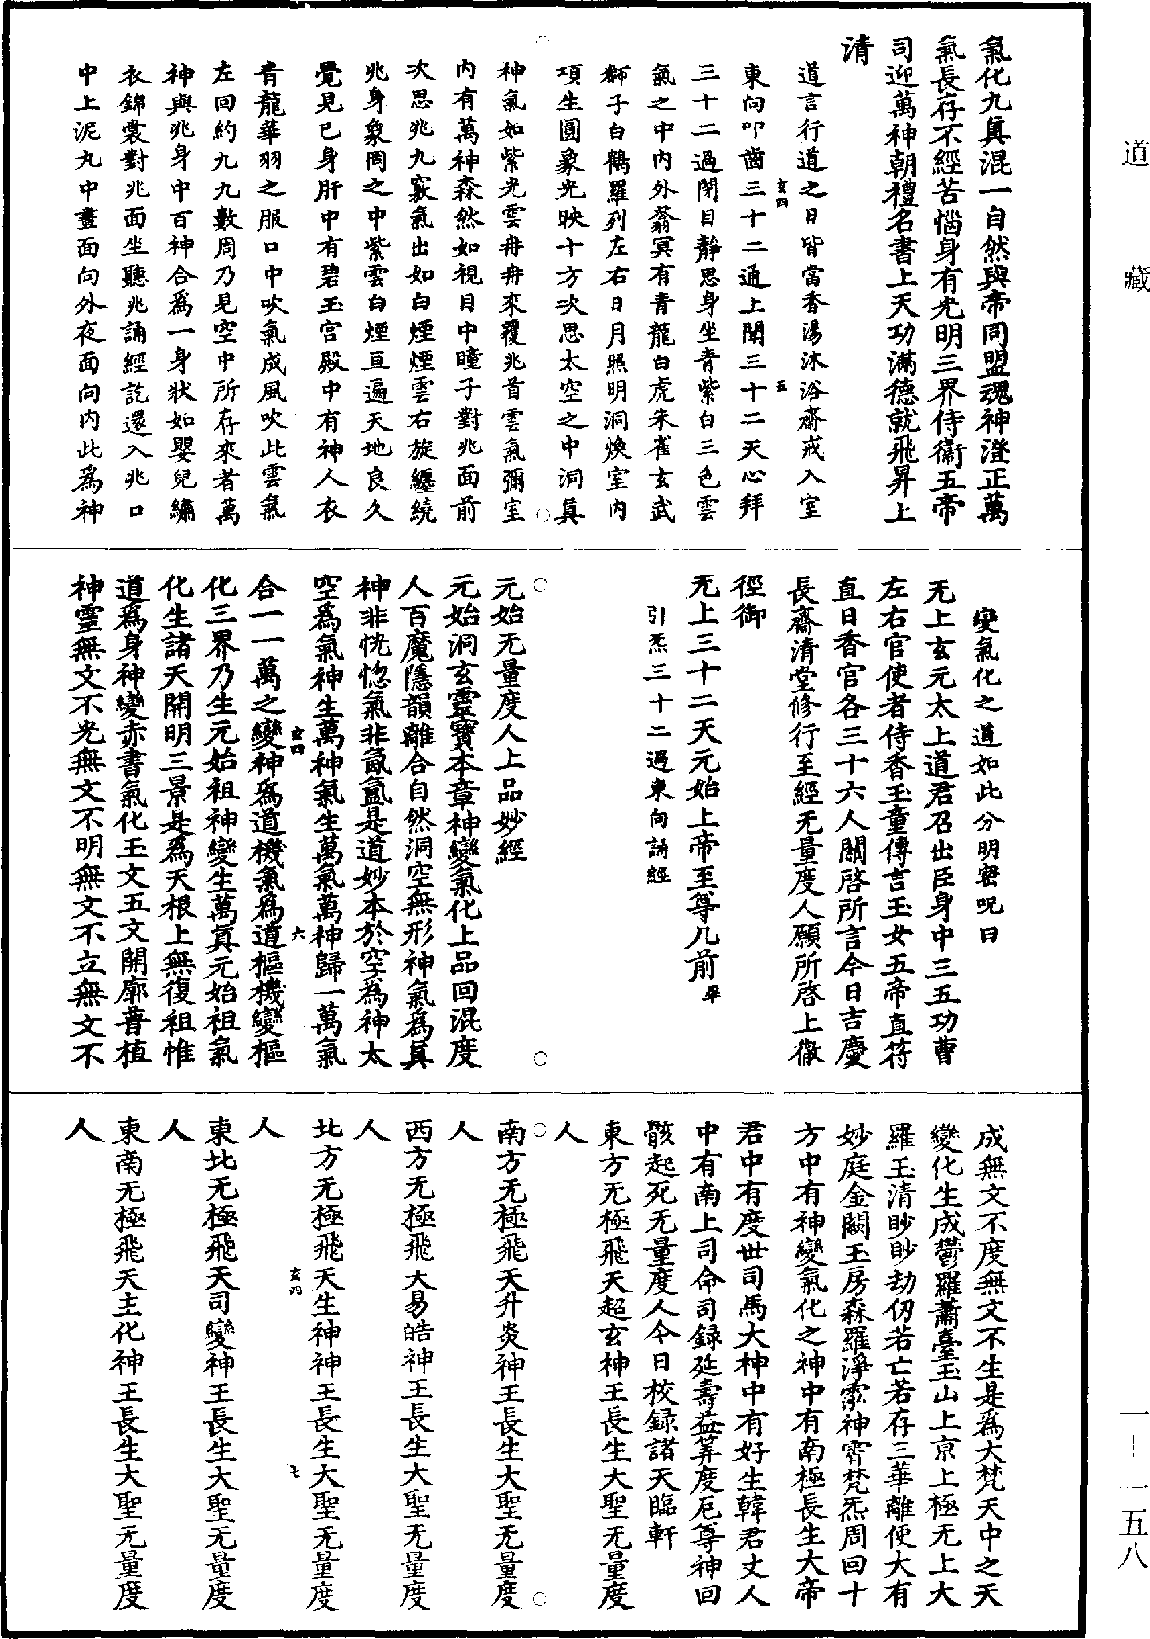 氣化九真混一自然與帝同盟魂神澄正萬
氣長存不經苦惱身有光明三界侍衛五帝
司迎萬神朝禮名書上天功滿德就飛昇上
清
道言行道之日皆當香湯沐浴齋戒入室
東向叩齒三十二通上聞三十二天心拜
三十二過閉目靜思身坐青紫白三色雲
氣之中內外蓊冥有青龍白虎朱雀玄武
獅子白鶴羅列左右日月照明洞煥室內
項生圓象光映十方次思太空之中洞真
神氣如紫光雲冉冉來覆兆首雲氣彌室
內有萬神森然如視目中瞳子對兆面前
次思兆九竅氣出如白煙煙雲右旋纏繞
兆身象罔之中紫雲白煙亘遍天地良久
覺見已身肝中有碧玉宮殿中有神人衣
青龍華羽之服口中吹氣成風吹此雲氣
左回約九九數周乃見空中所存來者萬
神與兆身中百神合為一身狀如嬰兒繡
衣錦裳對兆面坐聽兆誦經訖還入兆口
中上泥丸中晝面向外夜面向內此為神
玄四
五
變氣化之道如此分明密呪曰
无上玄元太上道君召出臣身中三五功曹
左右官使者侍香玉童傳言玉女五帝直符
直日香官各三十六人關啓所言今日吉慶
長齋清堂修行至經无量度人願所啓上徹
徑御
无上三十二天元始上帝至尊几前畢
引炁三十二過東向誦經
元始无量度人上品妙經
元始洞玄靈寶本章神變氣化上品回混度
人百魔隱韻離合自然洞空無形神氣為真
神非恍惚氣非氤氳是道妙本於空為神太
空為氣神生萬神氣生萬氣萬神歸一萬氣
合一一萬之變神為道機氣為道樞機變樞
化三界乃生元始祖神變生萬真元始祖氣
化生諸天開明三景是為天根上無復祖惟
道為身神變赤書氣化玉文五文開廓普植
神靈無文不光無文不明無文不立無文不
玄四
六
成無文不度無文不生是為大梵天中之天
變化生成鬱羅蕭臺玉山上京上極无上大
羅玉清眇眇劫仞若亡若存三華離便大有
妙庭金闕玉房森羅淨泓神霄梵炁周回十
方中有神變氣化之神中有南極長生大帝
君中有度世司馬大神中有好生韓君丈人
中有南上司命司録延壽益筭度厄尊神回
骸起死无量度人今日校録諸天臨軒
東方无極飛天超玄神王長生大聖无量度
人
南方无極飛天升炎神王長生大聖无量度
人
西方无極飛大易皓神王長生大聖无量度
人
北方无極飛天生神神王長生大聖无量度
人
東北无極飛天司變神王長生大聖无量度
人
東南无極飛天主化神王長生大聖无量度
人
玄四
七
道藏
一—一五八